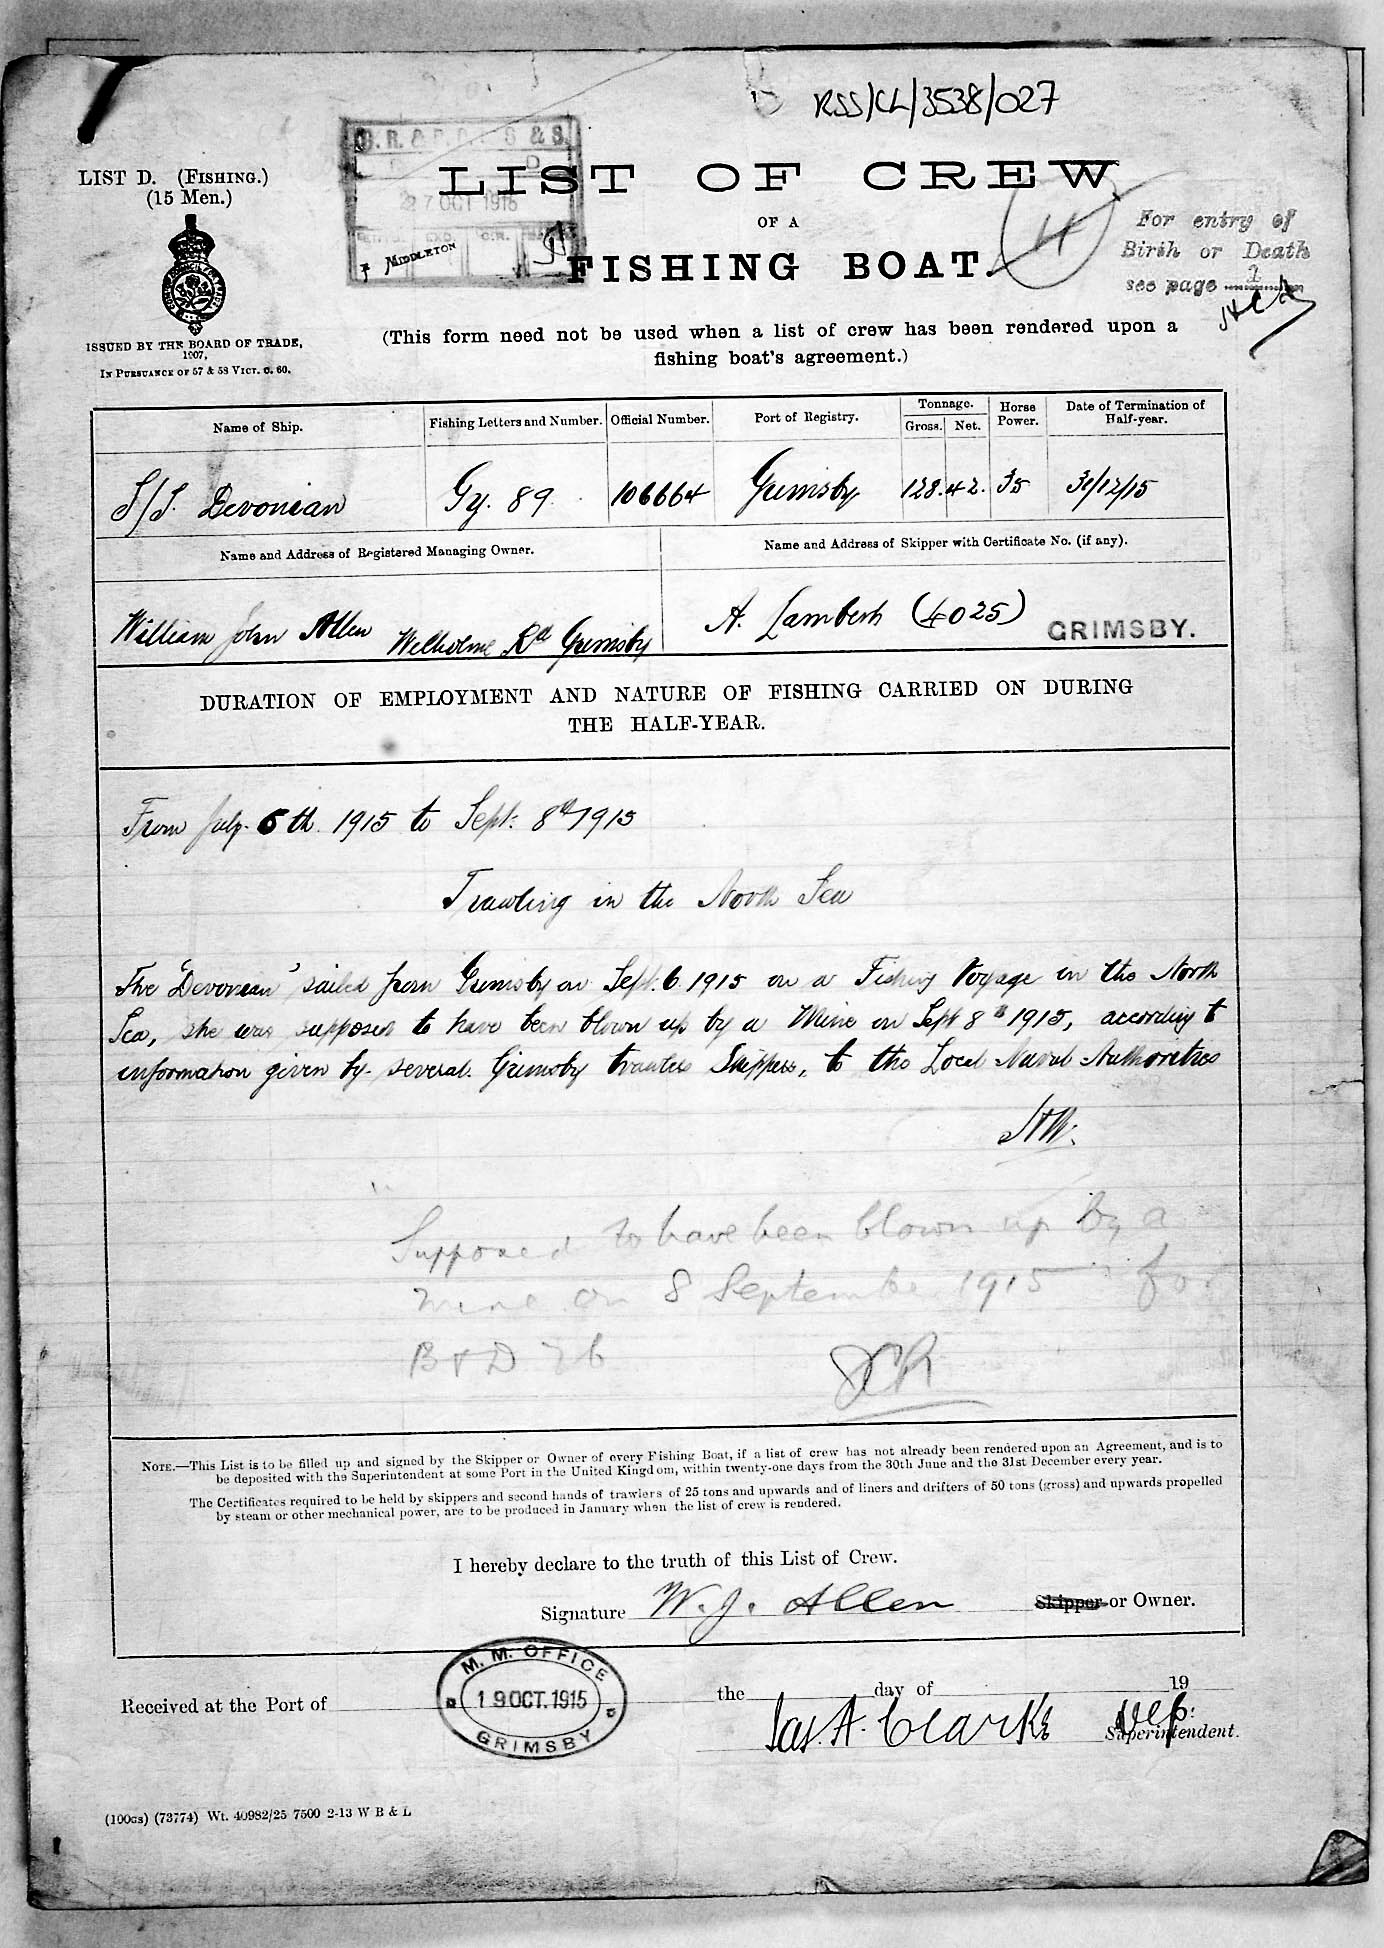 RSS/CL/3538/027
LIST D. (FISHING.)
(15 Men.)
ISSUED BY THE BOARD OF TRADE,
1907,
IN PURSUANCE OF 57 & 58 VICT. C. 60.
27 OCT 1915
MIDDLETON
LIST OF CREW
OF A
FISHING BOAT.
For entry of
Birth or Death
see page 1
(This form need not be used when a list of crew has been rendered upon a
fishing boat's agreement.)
Name of Ship. Fishing Letters and Number. Official Number. Port of Registry. Tonnage. Gross. Net. Horse Power. Date of Termination of Half-year.
S/S. Devonian Gy. 89 106664 Grimsby 128. 42. 35 31/12/15
Name and Address of Registered Managing Owner. Name and Address of Skipper with Certificate No. (if any).
William John Allen Welholme Rd Grimsby A. Lambert (4025) GRIMSBY.
DURATION OF EMPLOYMENT AND NATURE OF FISHING CARRIED ON DURING
THE HALF-YEAR.
From July 6th 1915 to Sept: 8th 1915
Trawling in the North Sea
The "Devonian" sailed from Grimsby on Sept. 6 1915 on a Fishing Voyage in the North
Sea, she was supposed to have been blown up by a Mine on Sept 8th 1915, according to
information given by several Grimsby trawler Skippers, to the Local Naval Authorities
Supposed to have been blown up by a
mine on 8 September 1915 for
B & D
JCR
NOTE.—This List is to be filled up and signed by the Skipper or Owner of every Fishing Boat, if a list of crew has not already been rendered upon an Agreement, and is to
be deposited with the Superintendent at some Port in the United Kingdom, within twenty-one days from the 30th June and the 31st December every year.
The Certificates required to be held by skippers and second hands of trawlers of 25 tons and upwards and of liners and drifters of 50 tons (gross) and upwards propelled
by steam or other mechanical power, are to be produced in January when the list of crew is rendered.
I hereby declare to the truth of this List of Crew.
Signature W. J. Allen Skipper or Owner.
M. M. OFFICE
19 OCT. 1915
GRIMSBY
Received at the Port of the day of 19
Jas. A. Clarke Dep:
Superintendent.
(100GS) (73774) Wt. 40982/25 7500 2-13 W B & L